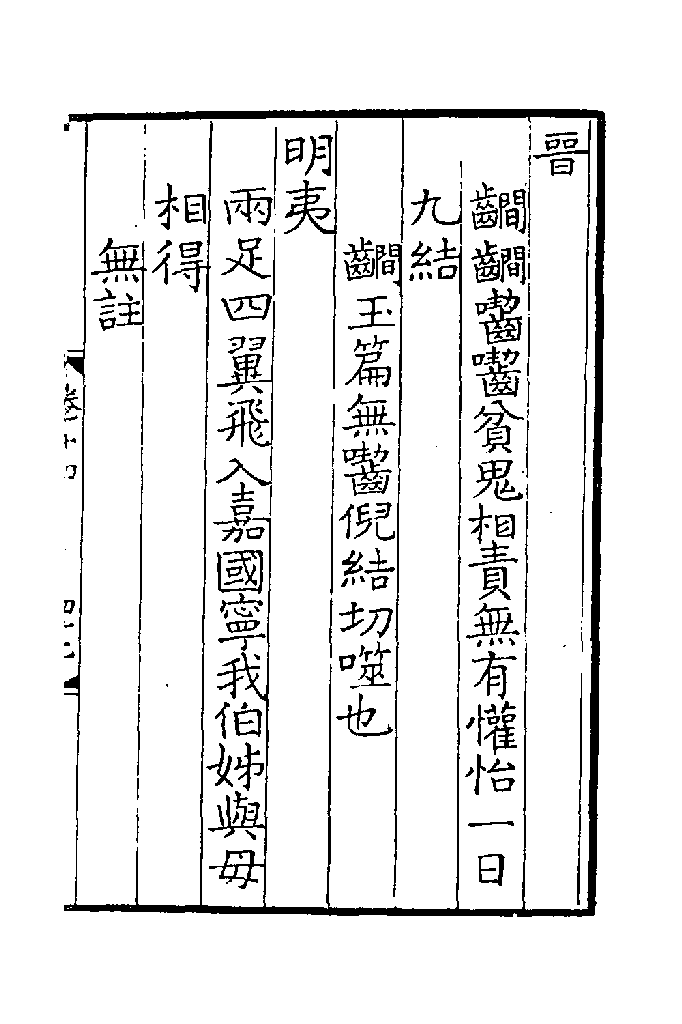 晉
齵齵齧齧貧鬼相責無有懽怡一日
九結
齵玉篇無齧倪結切噬也
明夷
兩足四翼飛入嘉國寧我伯姊與母
相得
無註
卷十四